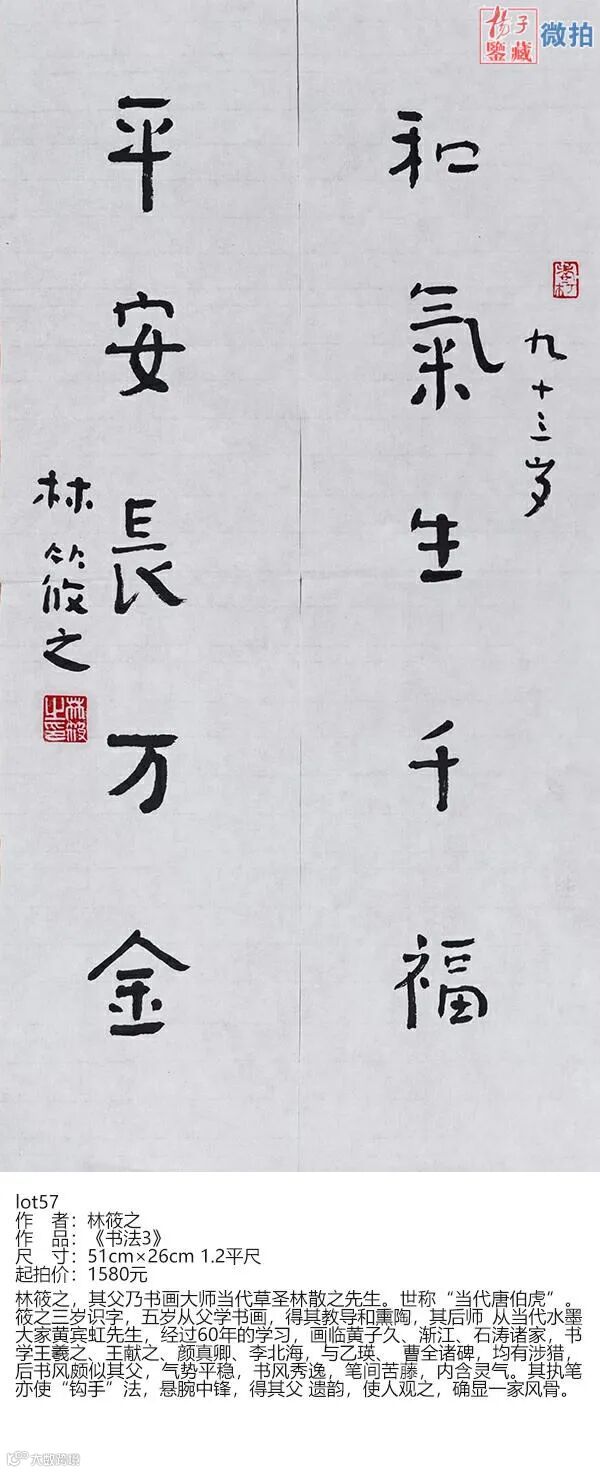 楊子
鑒藏
微拍
和氣生千福
平安長万金
九十三岁
林筱之
林筱
之印
lot57
作 者：林筱之
作 品：《书法3》
尺 寸：51cm×26cm 1.2平尺
起拍价：1580元
林筱之，其父乃书画大师当代草圣林散之先生。世称“当代唐伯虎”。
筱之三岁识字，五岁从父学书画，得其教导和熏陶，其后师 从当代水墨
大家黄宾虹先生，经过60年的学习，画临黄子久、渐江、石涛诸家，书
学王羲之、王献之、颜真卿、李北海，与乙瑛、 曹全诸碑，均有涉猎，
后书风颇似其父，气势平稳，书风秀逸，笔间苦藤，内含灵气。其执笔
亦使“钩手”法，悬腕中锋，得其父 遗韵，使人观之，确显一家风骨。